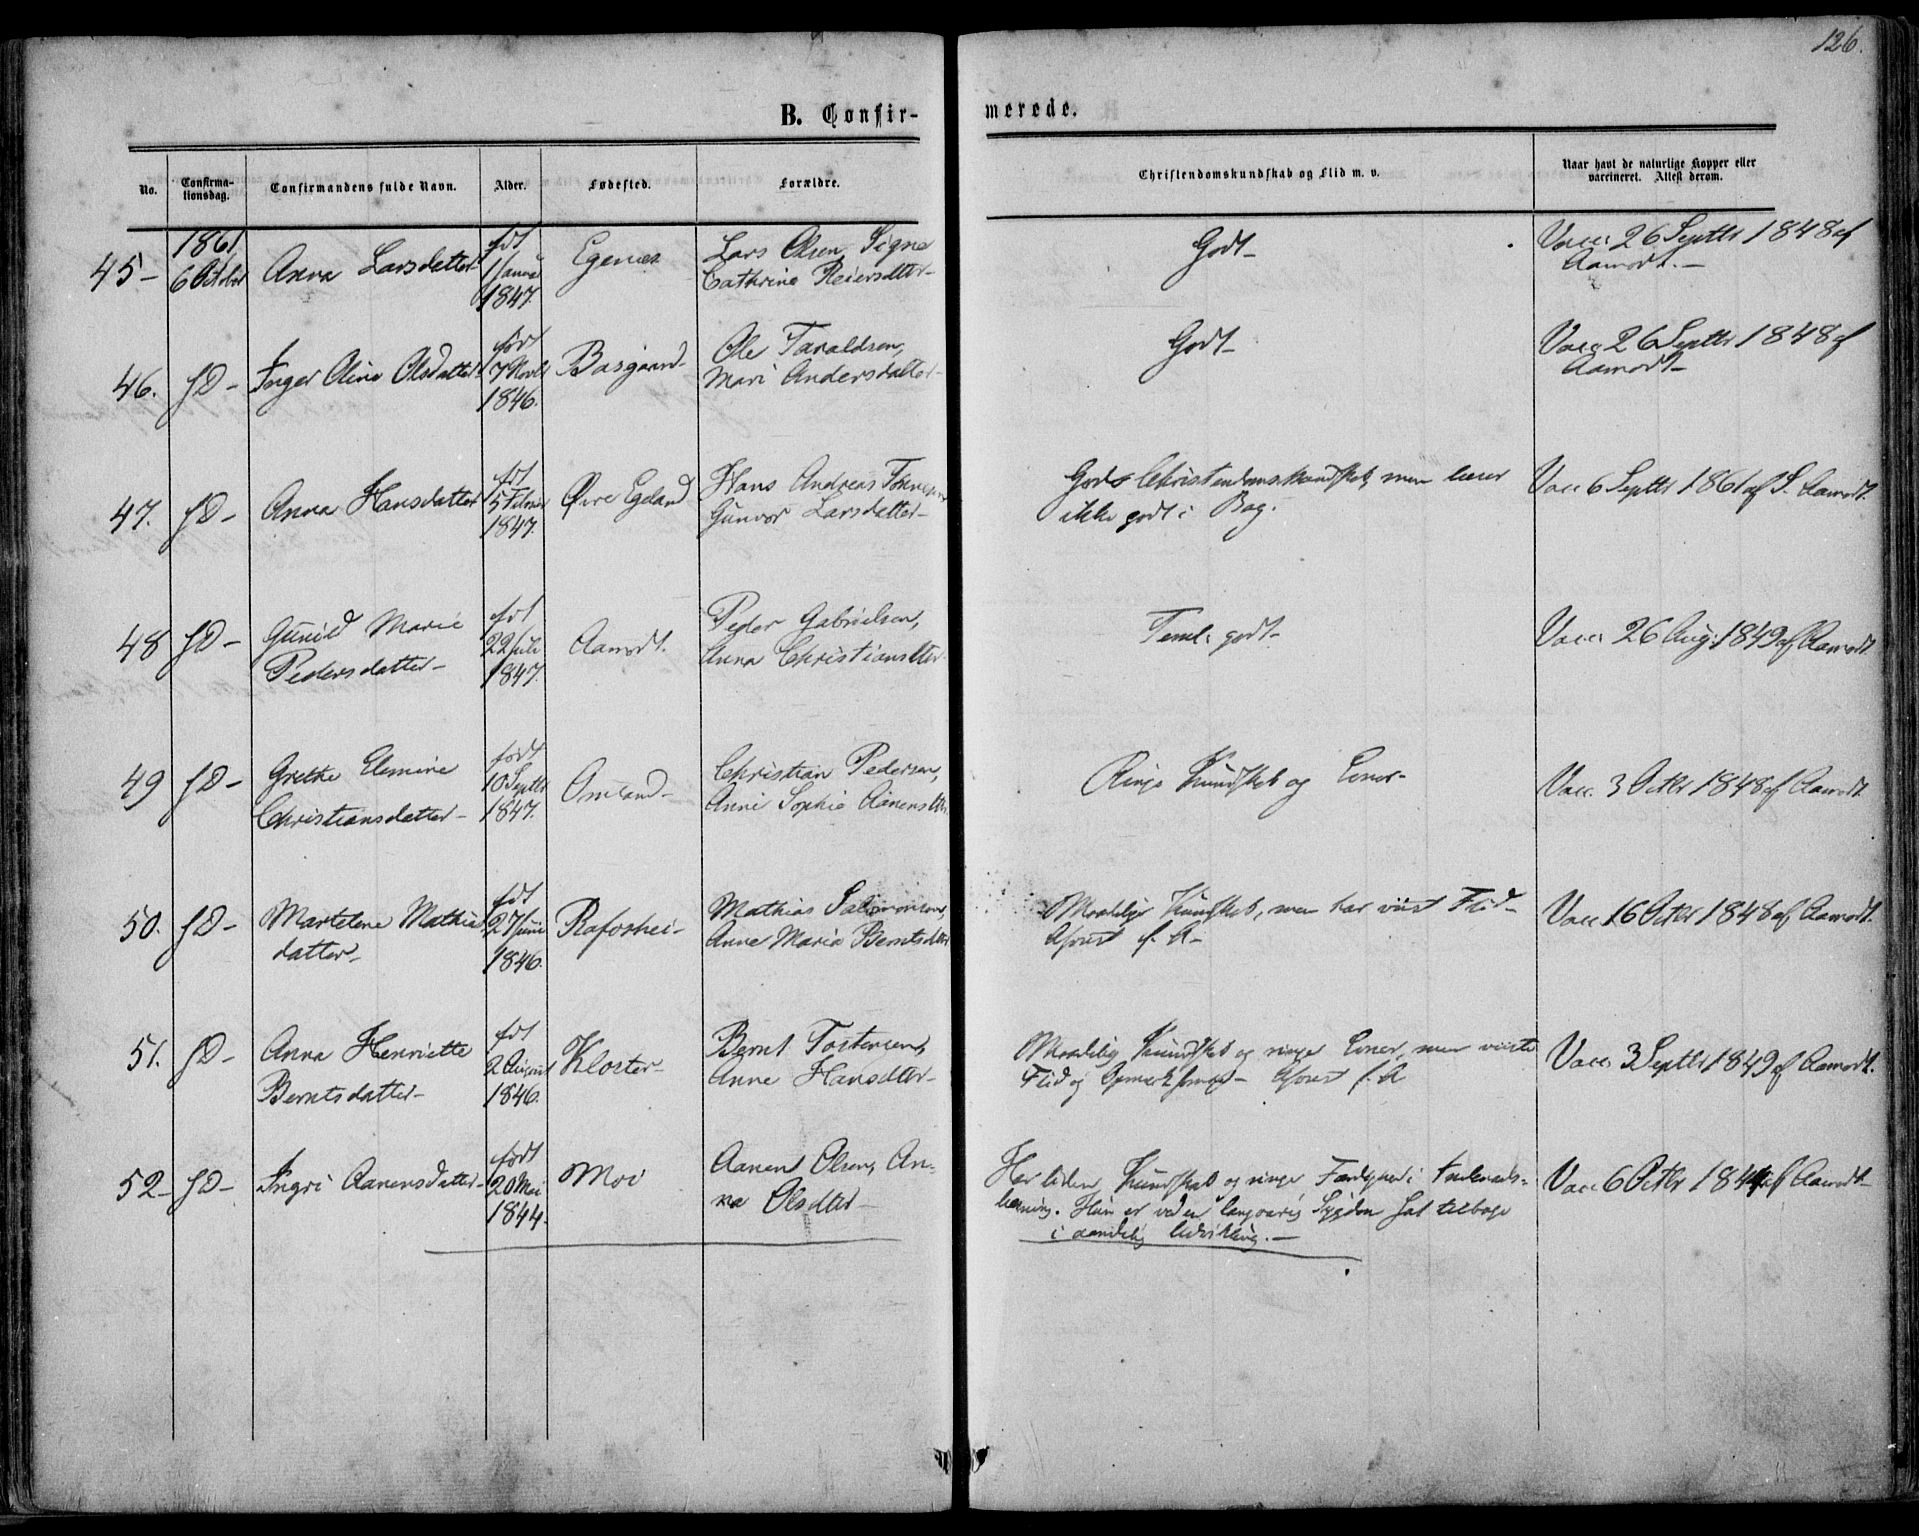 126.
B. Confir-
merede.
No.
Confirma-
tionsdag.
Confirmandens fulde Navn.
Alder.
Fødested.
Forældre.
Christendomskundskab og Flid m. v.
Naar havt de naturlige Kopper eller
vaccineret. Attest derom.
45- 1861 6 October Anna Larsdatter født 1 Januar 1847. Egenes Lars Olsen, Signe
Cathrine Reiersdtter- Godt- Vacc. 26 Septbr 1848 af
Aamodt.-
46. D- Inger Oline Olsdatter født 7 Novbr 1846. Bosgaard- Ole Taraldsen,
Mari Andersdatter- Godt- Vacc. 26 Septbr 1848 af
Aamodt-
47. D- Anna Hansdatter født 5 Februar 1847. Øvre Egeland Hans Andreas
Gunvor Larsdatter- Gods Christendomskundskab, men læser
ikke godt i Bog. Vacc 6 Septbr 1861 af S. Aamodt.
48 D- Gunild Marie
Pedersdatter- født 22 Juli 1847. Aamodt. Peder Gabrielsen,
Anna Christiansdtter- Teml. godt- Vacc. 26 Aug. 1849 af Aamodt.
49 D- Grethe Elemine
Christiansdatter- født 10 Septbr 1847. Omland- Christian Pedersen,
Anne Sophie Aanensdtter Ringe Kundskab og Evner- Vacc. 3 Octbr 1848 af Aamodt.
50. D- Martelene Mathias
datter- født 27 Juni 1846. Rafoshei- Mathias Salomonsen,
Anne Maria Berntsdtter Maadelige Kundskab, men har viist Flid-
f. A- Vacc 16 Octbr 1848 af Aamodt.
51. D- Anna Henriette
Berntsdatter- født 2 August 1846. Kloster- Bernt Tostensen,
Anne Hansdtter- Maadelig Kundskab og ringe Evner, men viiste
Flid og Opmærksomhed- f. A Vacc. 3 Septbr 1849 af Aamodt.
52- D- Ingri Aanensdatter- født 20 Mai 1844. Moi Aanen Olsen, An-
na Olsdtter- Har liden Kundskab og ringe Færdighed i Indenads-
læsning. Hun er ved en langvarig Sygdom sat tilbage
i aandelig Udvikling.- Vacc. 6 Octbr 1844 af Aamodt-